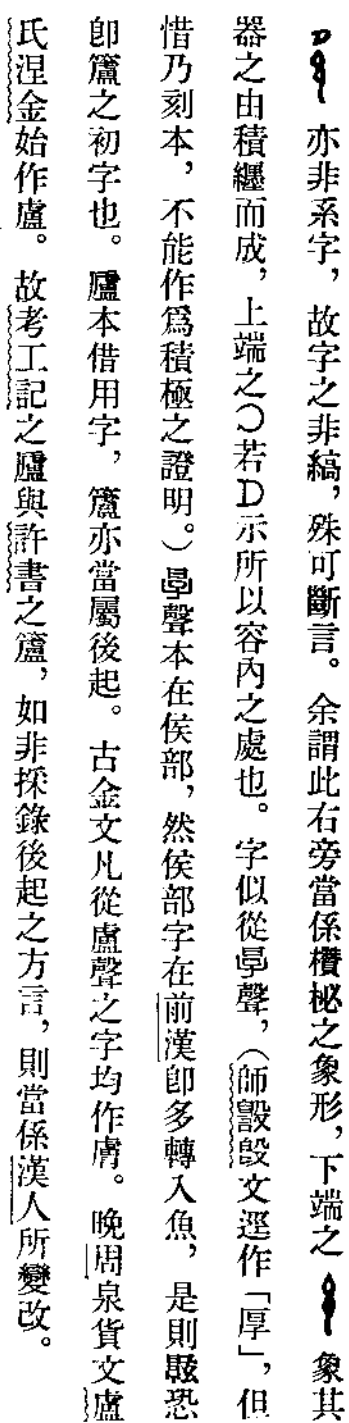 亦非系字，故字之非縞，殊可斷言。余謂此右旁當係欑柲之象形，下端之 象其
器之由積纏而成，上端之若D示所以容內之處也。字似從㫗聲，（師㝅𣪘文逕作「厚」，但
惜乃刻本，不能作爲積極之證明。）㫗聲本在侯部，然侯部字在前漢卽多轉入魚，是則恐
卽籚之初字也。廬本借用字，籚亦當屬後起。古金文凡從盧聲之字均作膚。晚周泉貨文盧
氏涅金始作盧。故考工記之廬與許書之籚，如非採錄後起之方言，則當係漢人所變改。